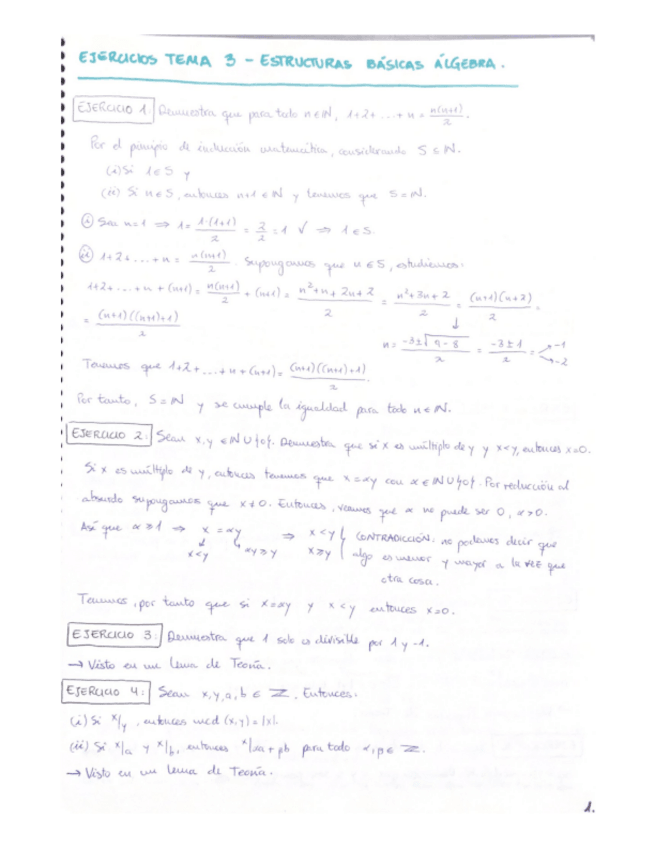 EJERCICIOS TEMA 3 - ESTRUCTURAS BÁSICAS ÁLGEBRA.
EJERCICIO 1: Demuestra que para todo n∈ℕ, 1+2+...+n = n(n+1)/2.
Por el principio de inducción matemática, considerando S⊆ℕ.
(i) Si 1∈S y
(ii) Si n∈S, entonces n+1∈ℕ y tenemos que S=ℕ.
(i) Sea n=1 ⇒ 1 = 1·(1+1)/2 = 2/2 = 1 √ ⇒ 1∈S.
(ii) 1+2+...+n = n(n+1)/2. Supongamos que n∈S, estudiemos:
1+2+...+n+(n+1) = n(n+1)/2 + (n+1) = n²+n+2n+2/2 = n²+3n+2/2 = (n+1)(n+2)/2 =
= (n+1)((n+1)+1)/2
↓
n = -3±√9-8/2 = -3±1/2 = -1 -2
Tenemos que 1+2+...+n+(n+1) = (n+1)((n+1)+1)/2.
Por tanto, S=ℕ y se cumple la igualdad para todo n∈ℕ.
EJERCICIO 2: Sean x,y ∈ℕ∪{0}. Demuestra que si x es múltiplo de y y x<y, entonces x=0.
Si x es múltiplo de y, entonces tenemos que x=αy con α∈ℕ∪{0}. Por reducción al
absurdo supongamos que x≠0. Entonces, veamos que α no puede ser 0, α>0.
Así que α≥1 ⇒ x = αy ⇒ x<y CONTRADICCIÓN: no podemos decir que
x<y αy≥y x≥y algo es menor y mayor a la vez que
otra cosa.
Tenemos, por tanto que si x=αy y x<y entonces x=0.
EJERCICIO 3: Demuestra que 1 solo es divisible por 1 y -1.
→ Visto en un lema de Teoría.
EJERCICIO 4: Sean x,y,a,b ∈ ℤ. Entonces.
(i) Si x/y, entonces mcd (x,y)=|x|.
(ii) Si x/a y x/b, entonces x/αa+βb para todo α,β∈ℤ.
→ Visto en un lema de Teoría.
1.